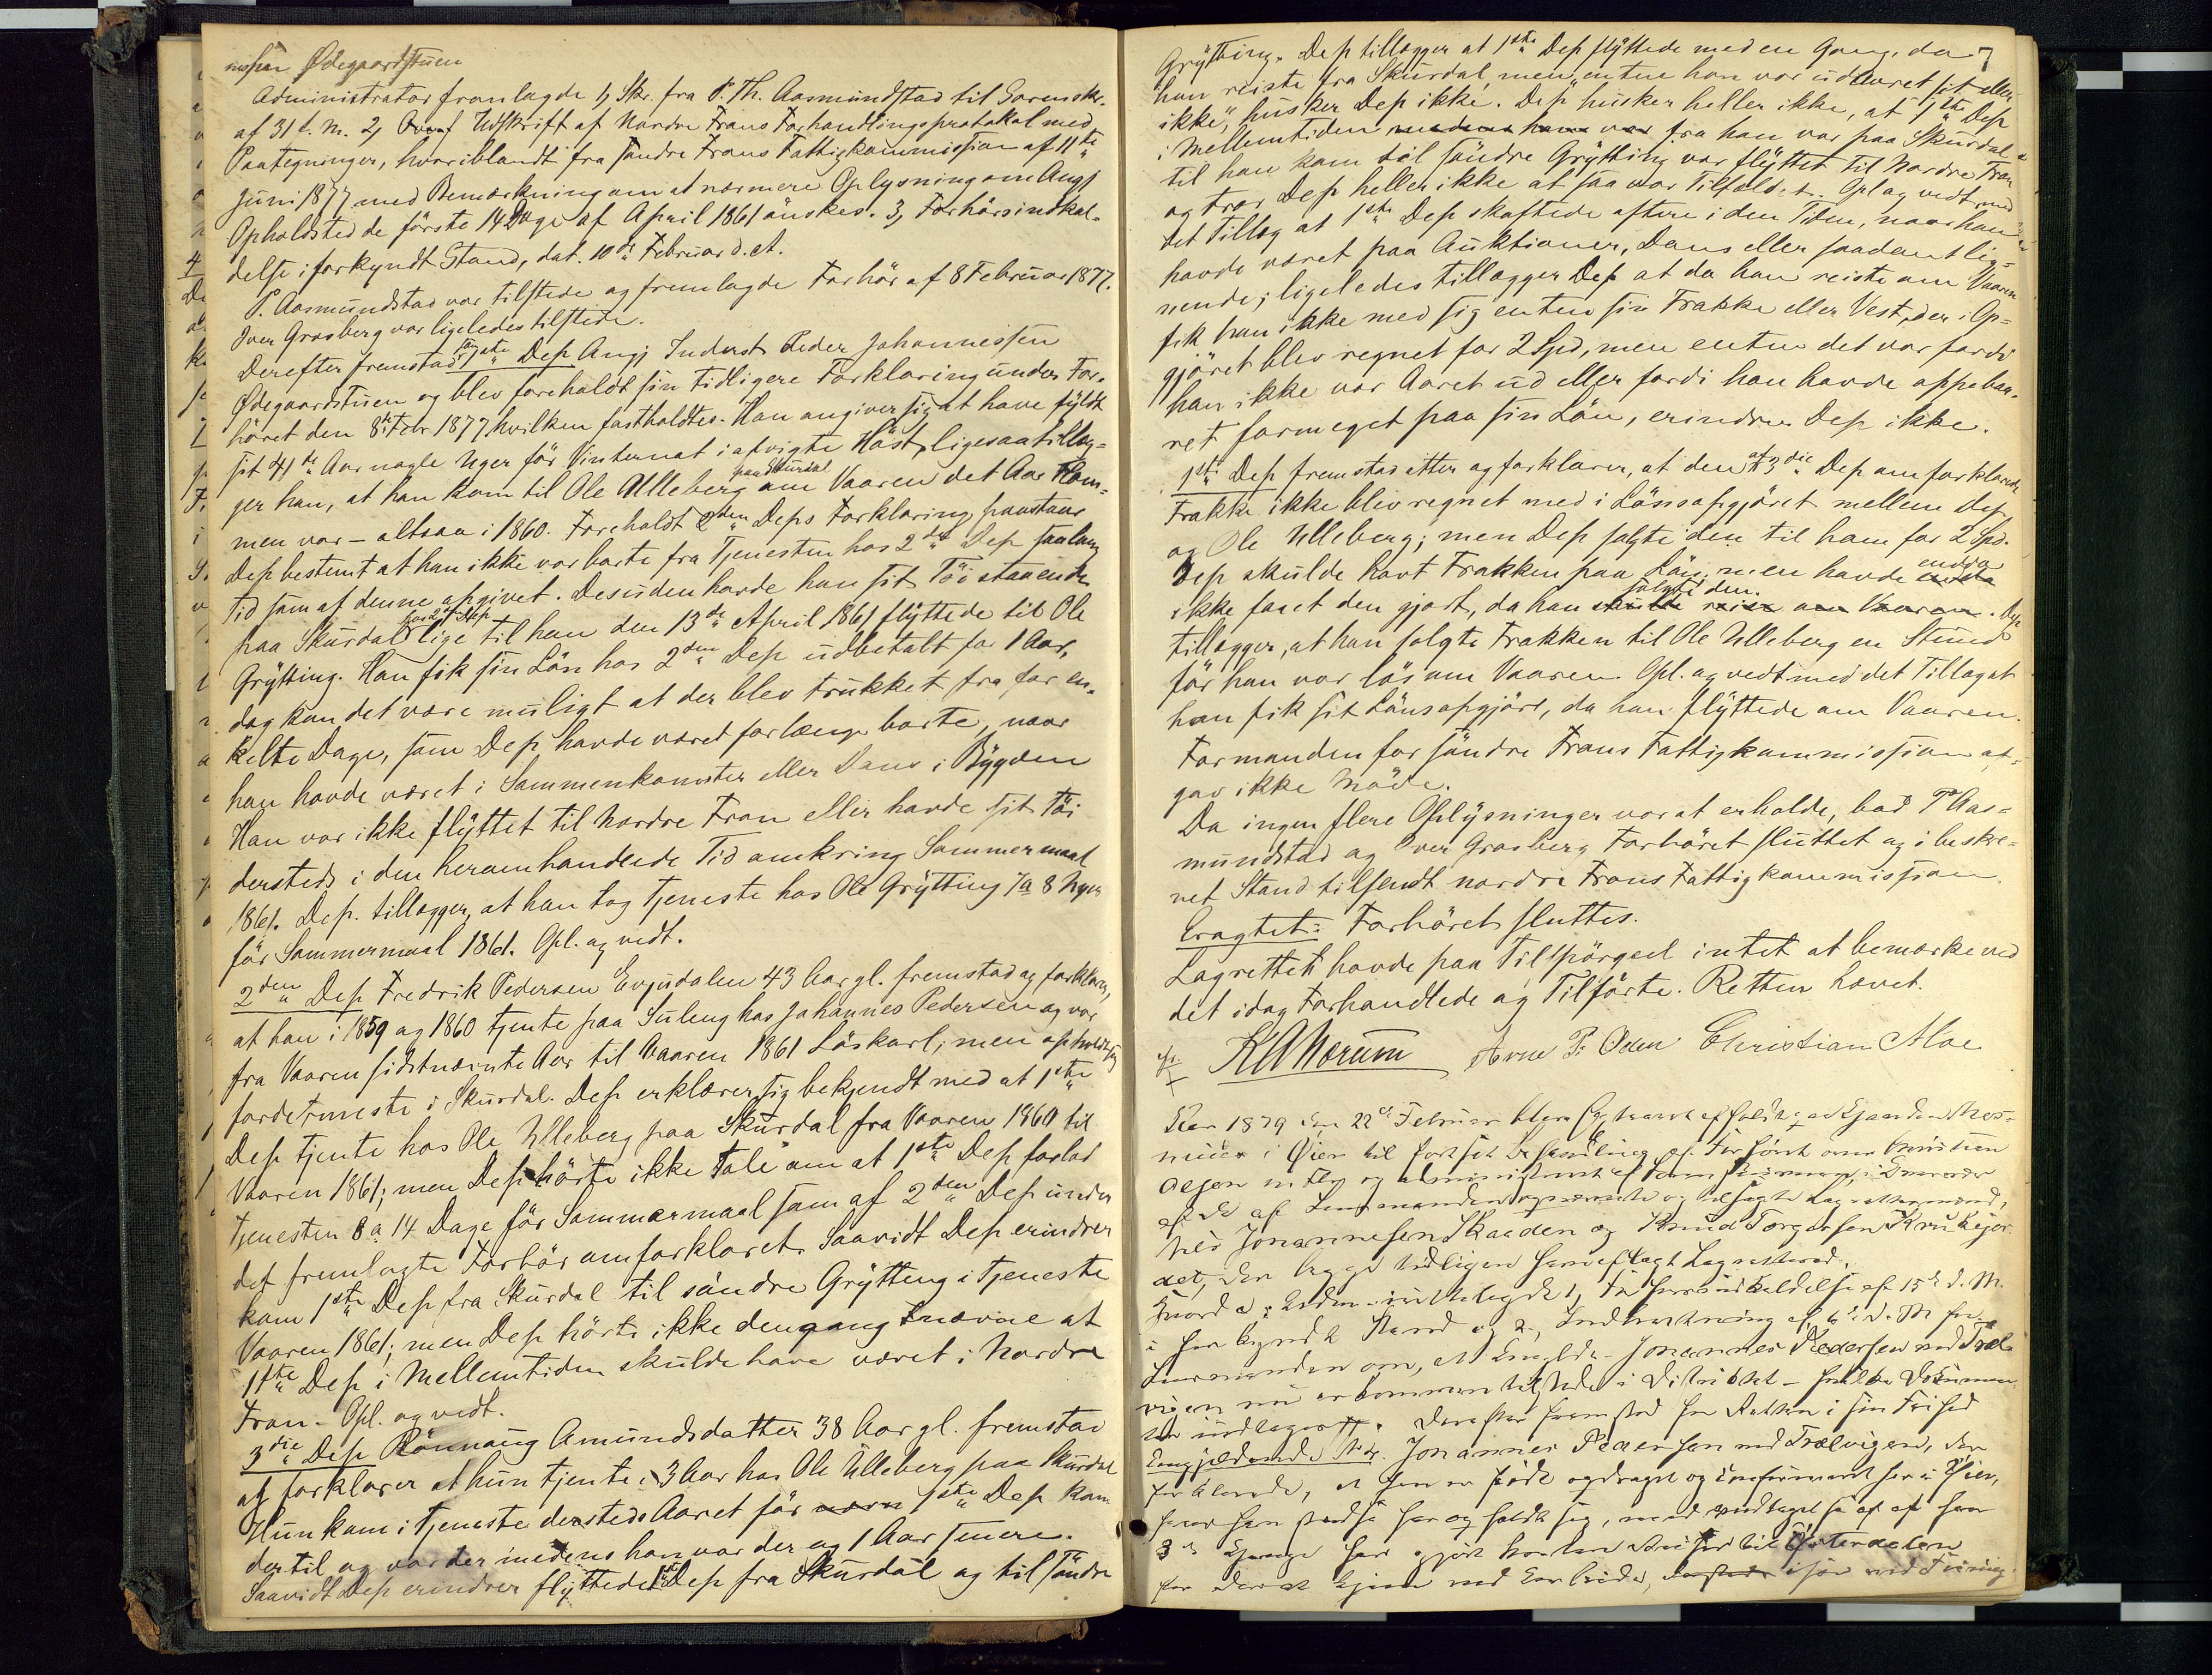 nessen Ødegaardstuen
Administrator fremlagde 1, Skr. fra P. Th. Aasmundstad til Sorenskr.
af 31 f. M. 2, Udskrift af Nordre Frons Forhandlingsprotokol med
Paategninger, hvoriblandt fra søndre Frons Fattigkommission af 11te
Juni 1877 med Bemærkning om at nærmere Oplysning om Angj
Opholdsted de første 14 Dage af April 1861 ønskes. 3, Forhørsindkal-
delse i forkyndt Stand, dat. 10de Februar d. A.
P. Aasmundstad var tilstede og fremlagde Forhør af 8 Februar 1877.
Iver Grosberg var ligeledes tilstede.
Derefter fremstod som 1ste Dep Angj Inderst Peder Johannessen
Ødegaardstuen og blev foreholdt sin tidligere Forklaring under For-
høret den 8de Febr 1877 hvilken fastholdtes. Han angiver sig at have fyldt
sit 41de Aar nogle Uger før Vinternat i afvigte Høst, ligesaa tillæg-
ger han, at han kom til Ole Ulleberg paa Skurdal om Vaaren det Aar Kom-
men var – altsaa i 1860. Foreholdt 2den Deps Forklaring paastaar
Dep bestemt at han ikke var borte fra Tjenesten hos 2den Dep saalang
Tid som af denne opgivet. Desuden havde han sit Töi staaende
paa Skurdal hos 2den Dep lige til han den 13de April 1861 flyttede til Ole
Grytting. Han fik sin Løn hos 2den Dep udbetalt for 1 Aar,
dog kan det være muligt at der blev trukket fra for en-
kelte Dage, som Dep havde været forlænge borte, naar
han havde været i Sammenkomster eller Dans i Bygden
Han var ikke flyttet til Nordre Fron eller havde sit Töi
dersteds i den heromhandlede Tid omkring Sommermaal
1861. Dep. tillægger, at han tog Tjeneste hos Ole Grytting 7 a 8 Uger
før Sommermaal 1861. Opl. og vedt.
2den Dep Fredrik Pedersen Evjudalen 43 Aar gl. fremstod og forklarer,
at han i 1859 og 1860 tjente paa Suleng hos Johannes Pedersen og var
fra Vaaren sidstnævnte Aar til Vaaren 1861 Løskarl; men opholdt sig
fordetmeste i Skurdal. Dep erklærer sig bekjendt med at 1ste
Dep tjente hos Ole Ulleberg paa Skurdal fra Vaaren 1860 til
Vaaren 1861; men Dep hørte ikke Tale om at 1ste Dep forlod
Tjenesten 8 a 14 Dage før Sommermaal som af 2den Dep under
det fremlagte Forhør omforklaret. Saavidt Dep erindrer
kom 1ste Dep fra Skurdal til søndre Grytting i Tjeneste
Vaaren 1861; men Dep hørte ikke dengang nævne at
1ste Dep i Mellemtiden skulde have været i Nordre
Fron. Opl. og vedt.
3die Dep Rønnaug Amundsdatter 38 Aar gl. fremstod
og forklarer at hun tjente i 3 Aar hos Ole Ulleberg paa Skurdal
Hun kom i Tjeneste dersteds Aaret før 1ste Dep kom
dertil og var der medens han var der og 1 Aar senere.
Saavidt Dep erindrer flyttede 1ste Dep fra Skurdal og til Søndre
7
Grytting. Dep tillægger at 1ste Dep flyttede med en Gang, da
han reiste fra Skurdal, men, enten han var udaaret sit eller
ikke, husker Dep ikke. Dep husker heller ikke, at 1ste Dep
i Mellemtiden fra han var paa Skurdal
til han kom til søndre Grytting var flyttet til Nordre Fron
og tror Dep heller ikke at saa var Tilfældet. Opl og vedt med
det Tillæg at 1ste Dep skoftede oftere i den Tiden, naar han
havde været paa Auktioner, Dans eller saadant lig-
nende; ligeledes tillægger Dep at da han reiste om Vaaren
fik han ikke med sig enten sin Frakke eller Vest, der i Op-
gjøret blev regnet for 2 Spd, men enten det var fordi
han ikke var Aaret ud eller fordi han havde oppebaa-
ret formeget paa sin Løn, erindrer Dep ikke.
1ste Dep fremstod atter og forklarer, at den af 3die Dep omforklarede
Frakke ikke blev regnet med i Lønsopgjøret mellem Dep
og Ole Ulleberg; men Dep solgte den til ham for 2 Spd.
Dep skulde havt Frakken paa Løn; men havde endda
ikke faaet den gjort, da han solgte den. Dep
tillægger, at han solgte Frakken til Ole Ulleberg en Stund
før han var løs om Vaaren. Opl. og vedt med det Tillæg at
han fik sit Lønsopgjør, da han flyttede om Vaaren.
Formanden for søndre Frons Fattigkommission af-
gav ikke Møde.
Da ingen flere Oplysninger var at erholde, bad P Aas-
mundstad og Iver Grosberg Forhøret sluttet og i beskre-
vet Stand tilsendt nordre Frons Fattigkommission.
Eragtet: Forhøret sluttes.
Lagrettet havde paa Tilspørgsel intet at bemærke ved
det idag Forhandlede og Tilførte. Retten hævet.
Arne P. Oden Christian Moe
Aar 1879 den 22de Februar blev Extraret afholdt paa Gaarden Mos-
i Øier til fortsat Behandling af Forhør
og administreret af i Overvær
af de af Lensmanden opnævnte og tilsagte Lagrettesmænd,
Nils Johannesen Skaaden og Knud Torgersen Krukejor-
det, der begge tidligere have aflagt Lagretteed.
1, Forhørsindkaldelse af 15de d. M.
i forkyndt Stand og 2, Indberetning af 6te d. M. fra
Lensmanden om, at Johannes Pedersen ved Træl-
vigen nu er kommen tilstede i Distriktet – hvilke Dokumen-
ter indtages. Derefter fremstod for Retten i sin Frihed
Johannes Pedersen ved Trælvigen, der
forklarede, at han er født opdraget og konfirmeret her i Øier,
har han stedse her og holdt sig, med Undtagelse af at han
3de Gange har gjort kortere Reiser til Østerdalen
for der at tjene ved Arbeide, isør ved Tømmer